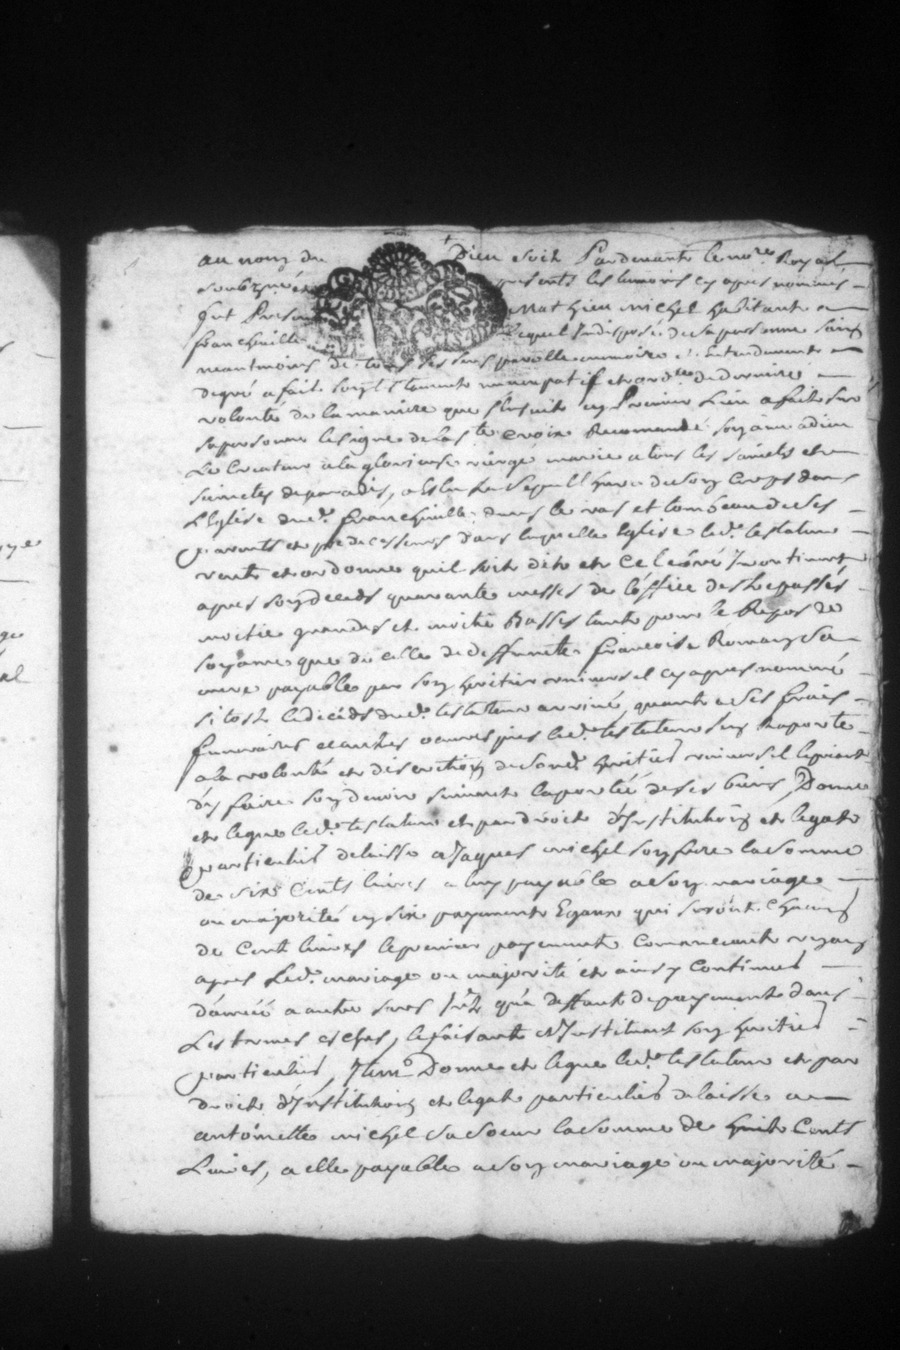 au nom de Dieu soit Pardevant le no.re Royal
soubzné presents les temoins cy apres nommés
fut Present Mathieu michel habitant a
francheville lequel Indisposé de sa personne sain
neantmoins de tous ses sens parolle memoire et Entendement
de gré a fait son testament nuncupatif et ord.re de derniere
volonté de la maniere que s'ensuit en Premier Lieu a fait sur
sa personne le signe de la s.te croix Recomandé son ame a dieu
Le Createur a la glorieuse vierge marie a tous les saincts et
sainctes de paradis, a Eslu La Sepulthure de son Corps dans
L'Eglise dud. francheville dans le vas et tombeau de ses
parents et predecesseurs dans laquelle Eglise led. testateur
veut et ordonne quil soit dit et Celebré Incontinent
apres son deceds quarante messes de l'office des trepassés
moitié grandes et moitié Basses tant pour le Repos de
son ame que de celle de deffunte françoise Romany sa
mere payable par son heritier universel cy apres nommé
si tost le deceds dud. testateur arrivé, quant a ses frais
funeraires et autres œuvres pies led. testateur s'en Raporte
a la volonté et discretion de sond. heritier universel le priant
d'en faire son devoir suivant la portée de ses biens, Donne
et legue led. testateur et par droit d'Institution et legat
particulier delaisse a Jaques michel son frere la somme
de six Cents livres a luy payable a son mariage
ou majorité en six payements Egaux qui seront chacun
de Cent livres le premier payement Commencant un an
apres Led. mariage ou majorité et ainsy Continuer
d'année a autre sans Int. qu'a deffaut de payement dans
Les termes eschus, le faisant et Instituant son heritier
particulier, Item Donne et legue led. testateur et par
droit d'Institution et legat particulier delaisse a
antoinette michel sa soeur la somme de huit Cents
Livres, a elle payable a son mariage ou majorité